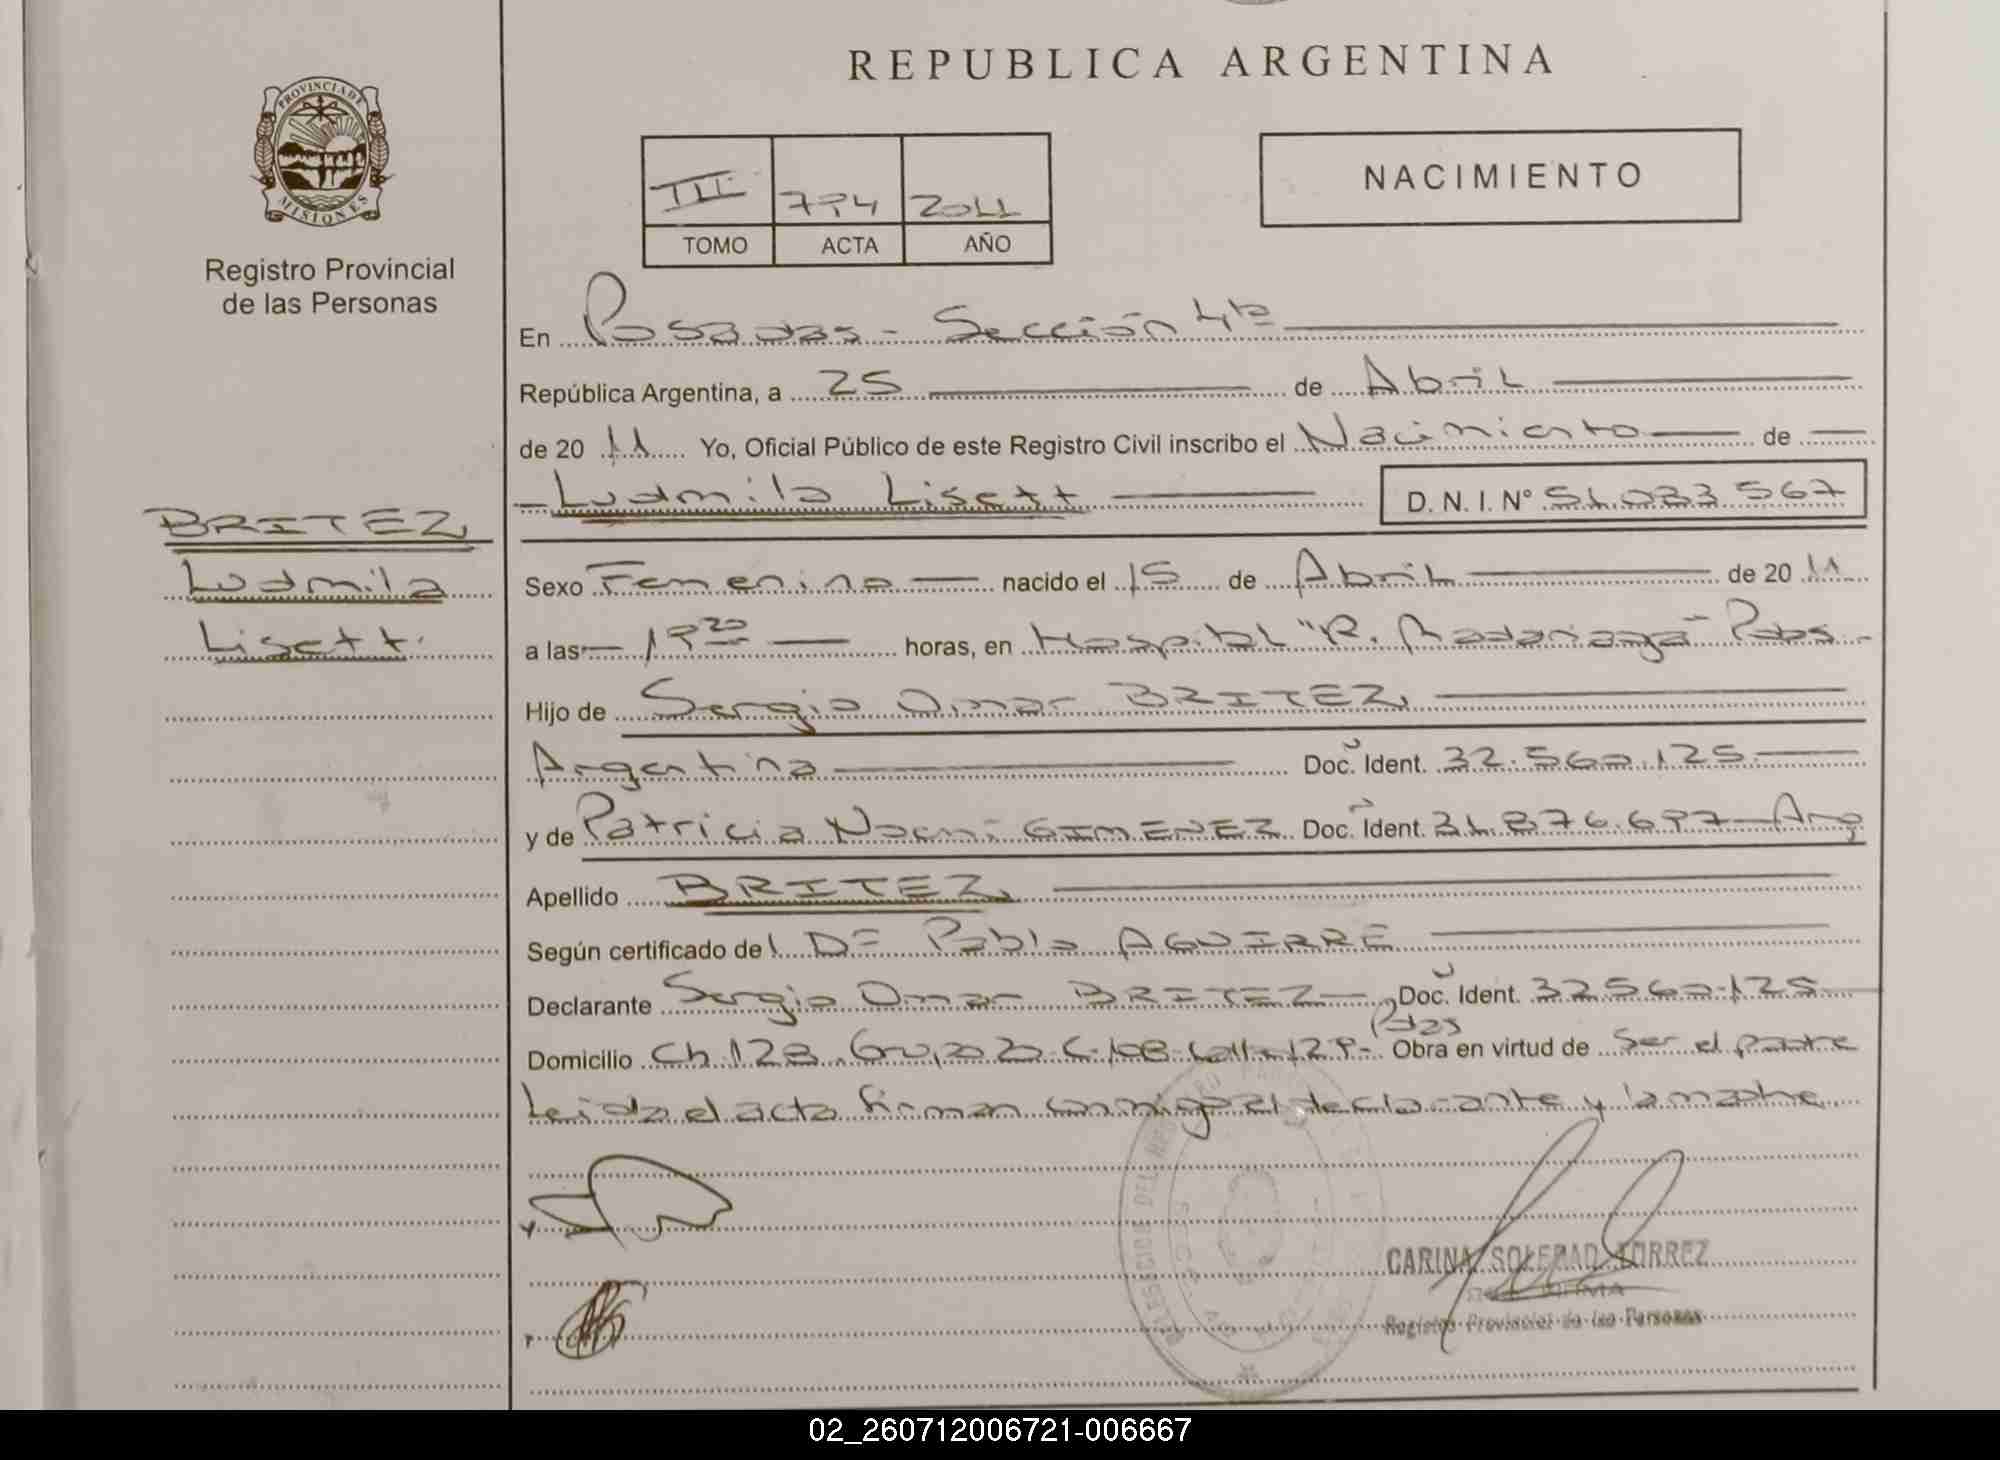 REPUBLICA ARGENTINA
PROVINCIA DE
MISIONES
Registro Provincial
de las Personas
III 794 2011
TOMO ACTA AÑO
NACIMIENTO
En Posadas - Sección 4ta
República Argentina, a 25 de Abril
de 2011 Yo, Oficial Público de este Registro Civil inscribo el Nacimiento de
Ludmila Lisett D. N. I. Nº 51.033.567
BRITEZ
Ludmila
Lisett.
Sexo Femenino nacido el 15 de Abril de 2011
a las 19 20 horas, en Hospital "R. Madariaga" Pdas
Hijo de Sergio Omar BRITEZ
Argentina Doc. Ident. 32.560.125
y de Patricia Noemi GIMENEZ Doc. Ident. 31.876.697 - Arg
Apellido BRITEZ
Según certificado de Pablo AGUIRRE
Declarante Sergio Omar BRITEZ Doc. Ident. 32560.125
Pdas
Domicilio Ch. 128 Obra en virtud de Ser el padre
Leida el acta firman conmigo el declarante y la madre
CARINA SOLEDAD TORREZ
FIRMA
Registro Provincial de las Personas
02_260712006721-006667